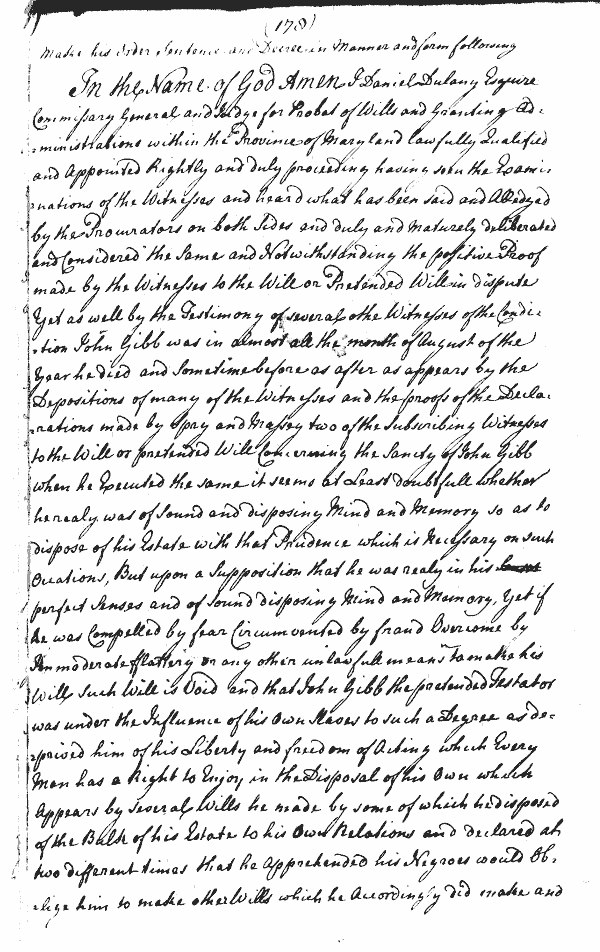 (178)
Make his Order Sentence and Decree in Manner and form following
In the Name of God Amen I Daniel Dulany Esquire
Commissary General and Judge for Probat of Wills and Granting Ad-
-ministrations within the Province of Maryland lawfully Qualified
and Appointed Rightly and duly proceeding having seen the Exami-
-nations of the Witnesses and heard what has been said and Alledged
by the Procurators on both Sides and duly and maturely deliberated
and Considered the Same and Notwithstanding the positive Proof
made by the Witnesses to the Will or Pretended Will in dispute
Yet as well by the Testimony of several othe Witnesses of the Condi-
-tion John Gibb was in almost all the month of August of the
Year he died and Sometime before as after as appears by the
Depositions of many of the Witnesses and the proofs of the Decla-
-rations made by Spry and Massey two of the Subscribing Witnesses
to the Will or pretended Will Concerning the Sanety of John Gibb
when he Executed the same it seems at Least doubtfull whether
he realy was of Sound and disposing Mind and Memory so as to
dispose of his Estate with that Prudence which is Necessary on such
Ocations, But upon a Supposition that he was realy in his
perfect Senses and of Sound disposing Mind and Memory, Yet if
he was Compelled by fear Circumvented by fraud Overcome by
Immoderate flattery or any other unlawfull means to make his
Will such Will is Void and that John Gibb the pretended Testator
was under the Influence of his Own Slaves to such a Degree as de-
-prived him of his Liberty and freedom of Acting which Every
Man has a Right to Enjoy in the Disposal of his Own which
Appears by Several Wills he made by some of which he disposed
of the Bulk of his Estate to his Own Relations and declared at
two different times that he Apprehended his Negroes would Ob-
-lige him to make other Wills which he Accordingly did make and